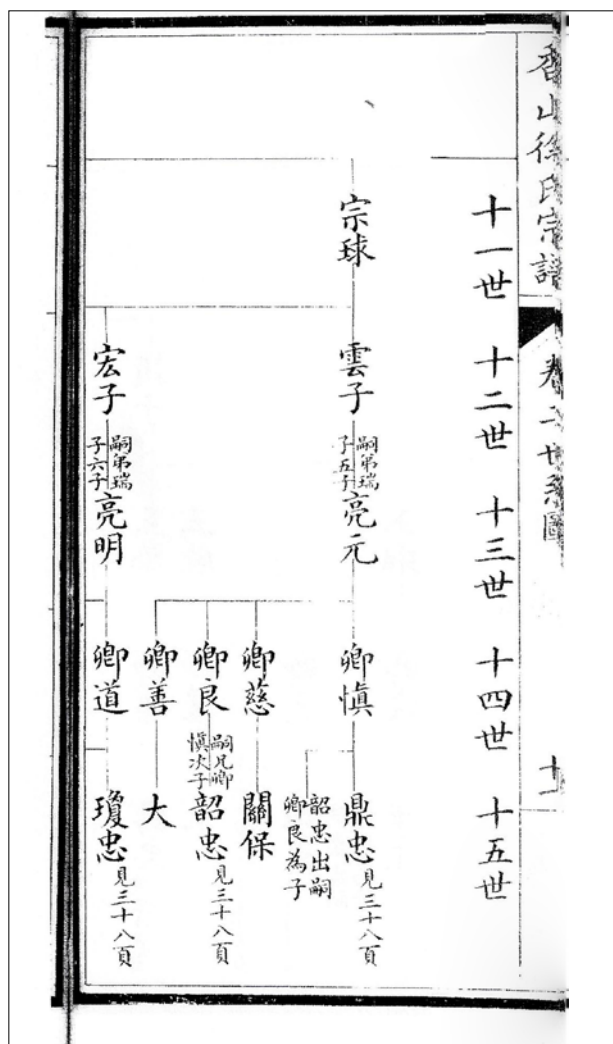 香山徐氏宗譜
卷二世系圖
十一
十一世 十二世 十三世 十四世 十五世
宗球
雲子
嗣弟瑞
子五子
亮元
卿慎
鼎忠
見三十八頁
韶忠出嗣
卿良為子
卿慈
關保
卿良
嗣兄卿
慎次子
韶忠
見三十八頁
卿善
大
宏子
嗣弟瑞
子六子
亮明
卿道
瓊忠
見三十八頁